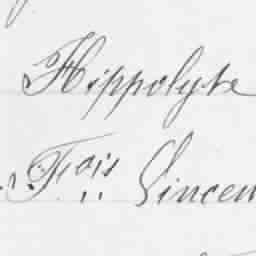 Hippolyte
Fois Vincen